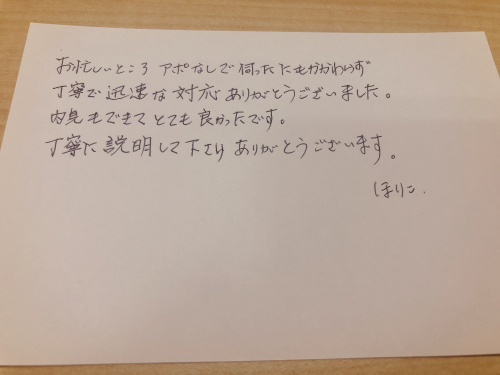 お忙しいところ アポなしで伺ったにもかかわらず
丁寧で迅速な対応ありがとうございました。
内見もできてとても良かったです。
丁寧に説明して下さりありがとうございます。
ほりこ.